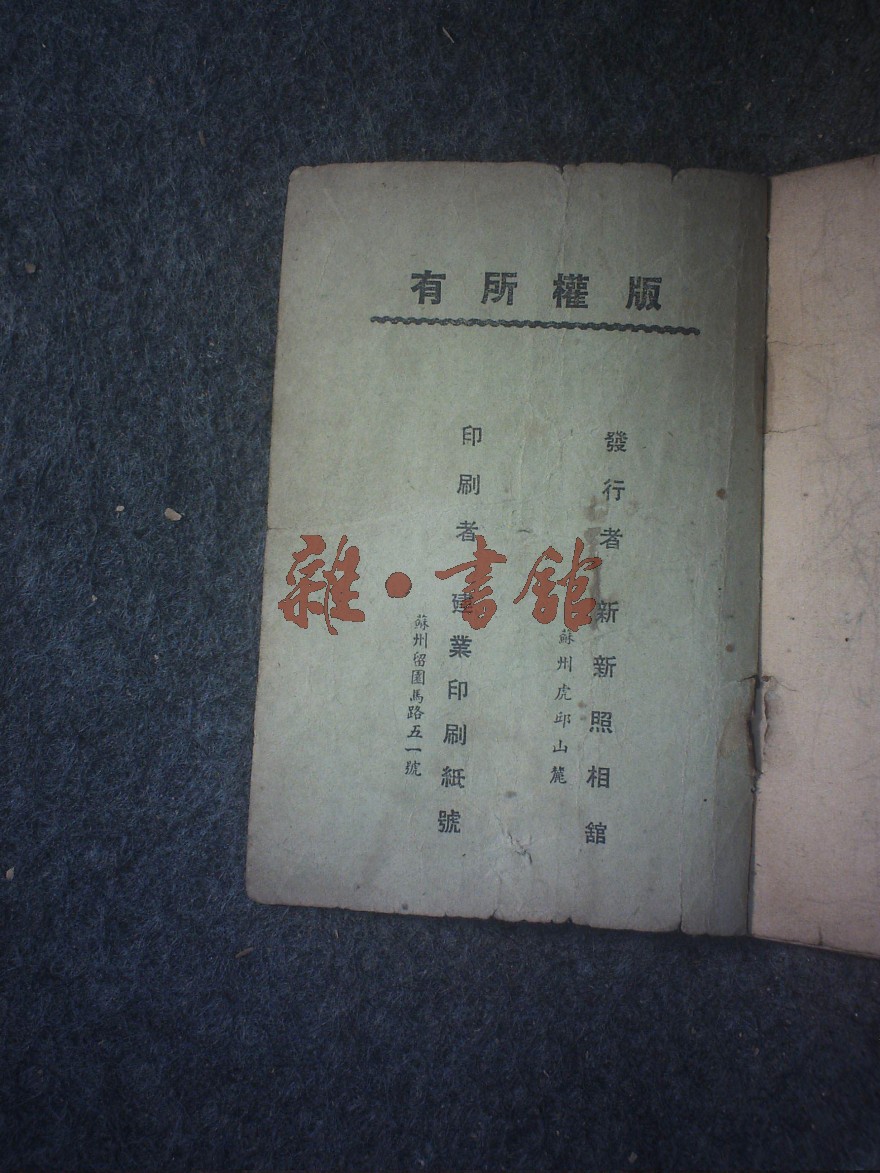 版權所有
發行者 新新照相舘
蘇州虎邱山麓
印刷者 建業印刷紙號
蘇州留園馬路五一號
雜·書舘